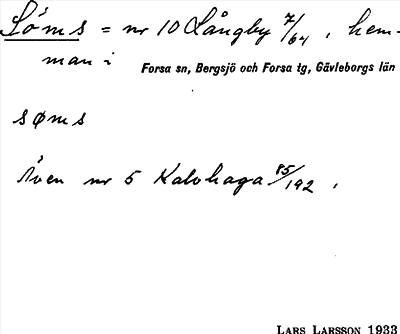 Söms = nr 10 Långby 7/64, hem-
man i Forsa sn, Bergsjö och Forsa tg, Gävleborgs län
søms
Även nr 5 Kalvhaga 85/192,
LARS LARSSON 1933